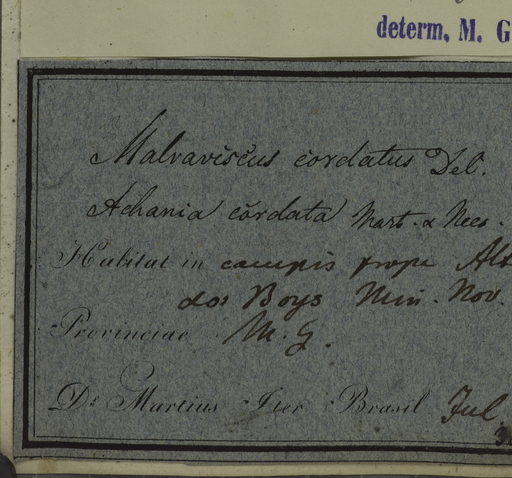 determ. M. G
Malvaviscus cordatus Del.
Achania cordata Mart. & Nees.
Habitat in campis prope Alt
dos Boys Min. Nov.
Provinciae M. G.
Dr Martius Iter Brasil Jul